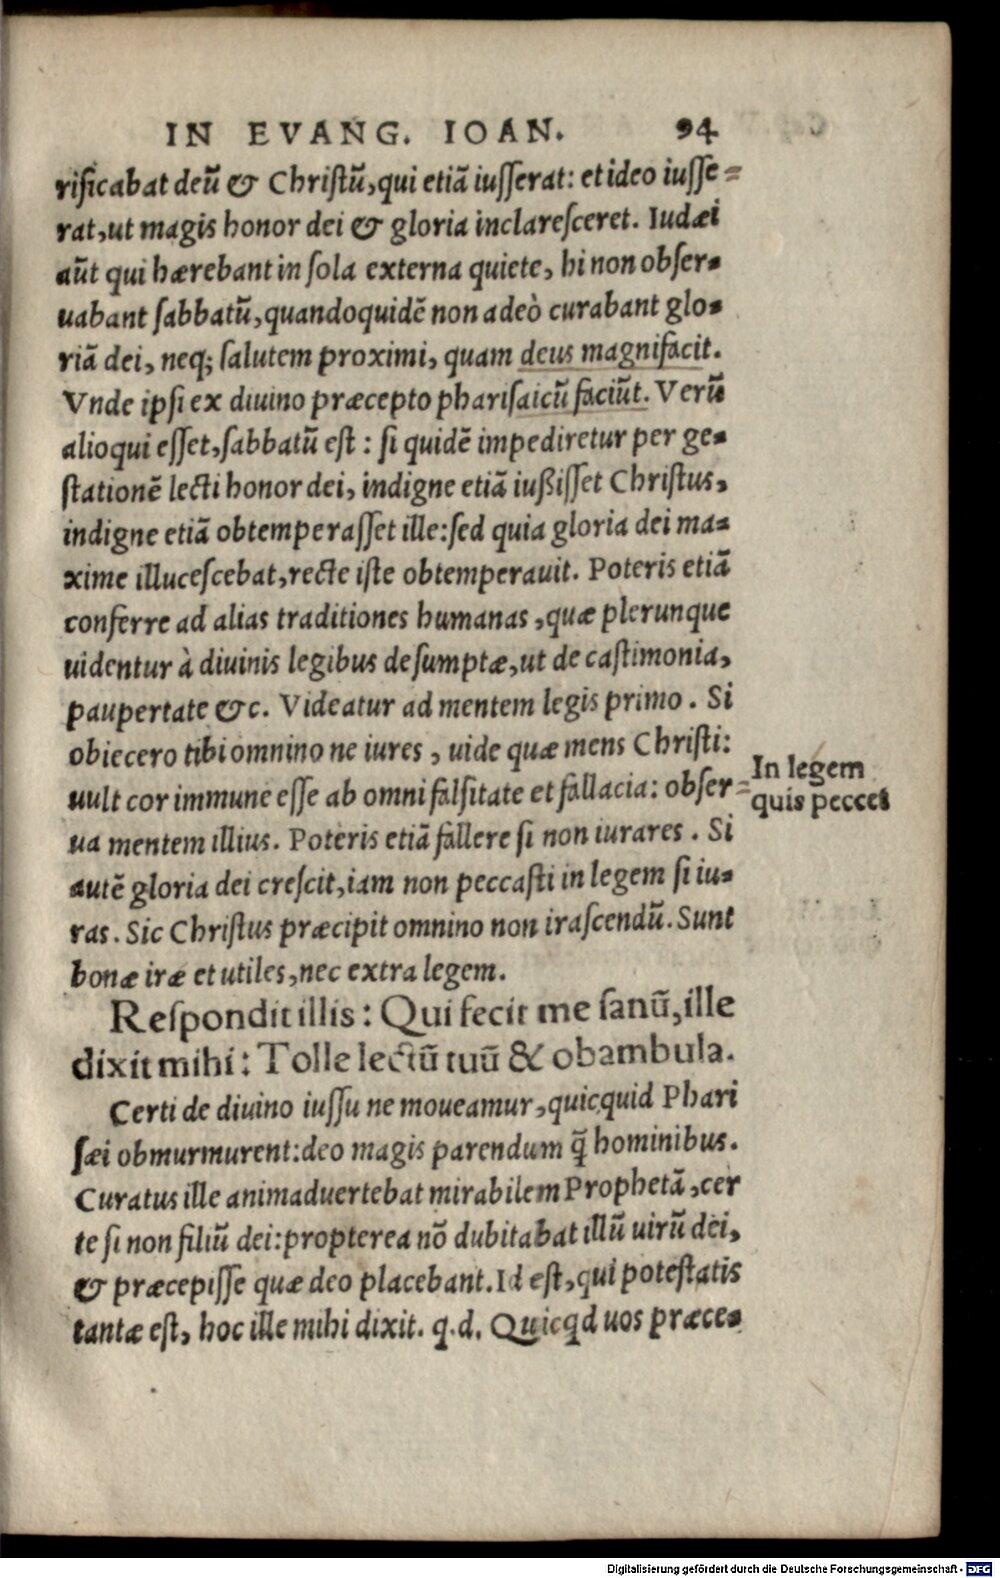 IN EVANG. IOAN. 94
rificabat deũ & Chriſtũ, qui etiã iuſſerat: et ideo iuſſe=
rat, ut magis honor dei & gloria inclareſceret. Iudæi
aũt qui hærebant in ſola externa quiete, hi non obſer=
uabant ſabbatũ, quandoquidẽ non adeò curabant glo=
riã dei, neq; ſalutem proximi, quam deus magnifacit.
Vnde ipſi ex diuino præcepto phariſaicũ faciũt. Verũ
alioqui eſſet, ſabbatũ eſt : ſi quidẽ impediretur per ge=
ſtationẽ lecti honor dei, indigne etiã iußiſſet Chriſtus,
indigne etiã obtemperaſſet ille: ſed quia gloria dei ma=
xime illuceſcebat, recte iſte obtemperauit. Poteris etiã
conferre ad alias traditiones humanas, quæ plerunque
uidentur à diuinis legibus deſumptæ, ut de caſtimonia,
paupertate &c. Videatur ad mentem legis primo. Si
obiecero tibi omnino ne iures, uide quæ mens Chriſti:
uult cor immune eſſe ab omni falſitate et fallacia: obſer=
ua mentem illius. Poteris etiã fallere ſi non iurares. Si
autẽ gloria dei creſcit, iam non peccaſti in legem ſi iu=
ras. Sic Chriſtus præcipit omnino non iraſcendũ. Sunt
bonæ iræ et utiles, nec extra legem.
In legem
quis peccet
Reſpondit illis: Qui fecit me ſanũ, ille
dixit mihi: Tolle lectũ tuũ & obambula.
Certi de diuino iuſſu ne moueamur, quicquid Phari
ſæi obmurmurent: deo magis parendum q̃ hominibus.
Curatus ille animaduertebat mirabilem Prophetã, cer
te ſi non filiũ dei: propterea nõ dubitabat illũ uirũ dei,
& præcepiſſe quæ deo placebant. Id eſt, qui poteſtatis
tantæ eſt, hoc ille mihi dixit. q.d. Quicqd uos præce=
Digitalisierung gefördert durch die Deutsche Forschungsgemeinschaft - DFG